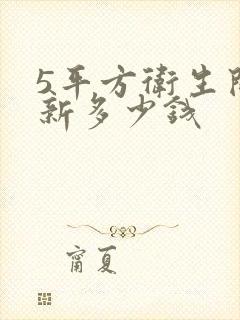 5平方衛生間
新多少錢
甯夏